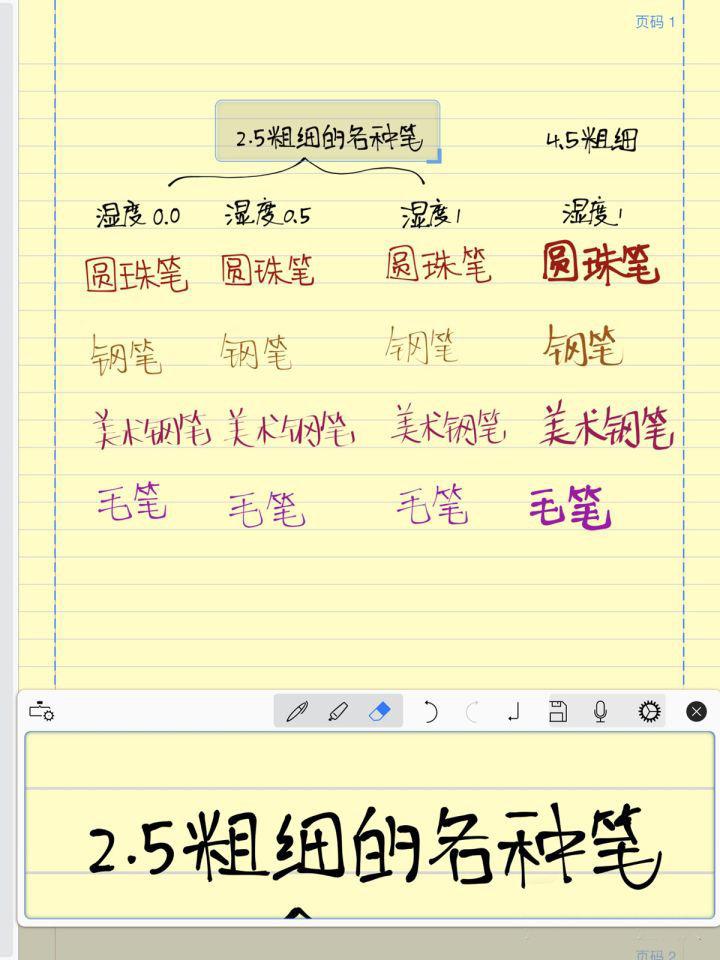 页码 1
2.5粗细的各种笔 4.5粗细
湿度0.0 湿度0.5 湿度1 湿度1
圆珠笔 圆珠笔 圆珠笔 圆珠笔
钢笔 钢笔 钢笔 钢笔
美术钢笔 美术钢笔 美术钢笔 美术钢笔
毛笔 毛笔 毛笔 毛笔
2.5粗细的各种笔
页码 2